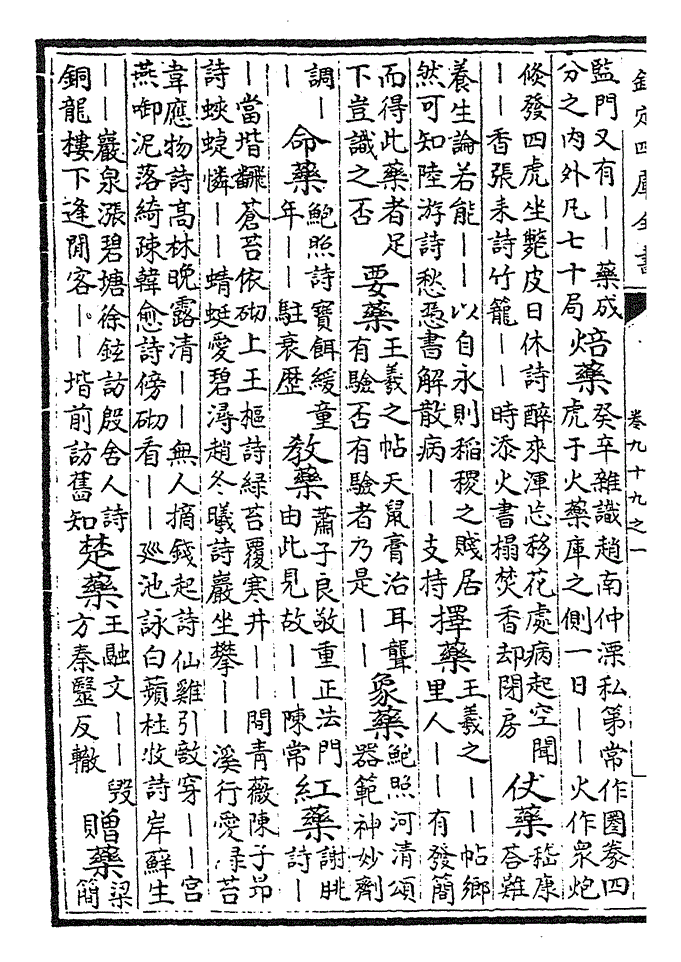 欽定四庫全書 卷九十九之一
監門又有——藥成
分之内外凡七十局
焙藥
癸辛雜識趙南仲溧私第常作圈豢四
虎于火藥庫之側一日——火作衆炮
倐發四虎坐斃皮日休詩醉來渾忘移花處病起空聞
——香張耒詩竹籠——時添火書榻焚香却閉房
仗藥
嵇康
荅難
養生論若能——以自永則稻稷之賤居
然可知陸游詩愁憑書解散病——支持
擇藥
王羲之——帖鄉
里人——有發簡
而得此藥者足
下豈識之否
要藥
王羲之帖天鼠膏治耳聾
有驗否有驗者乃是——
象藥
鮑照河清頌
器範神妙劑
調—
—
命藥
鮑照詩寶餌緩童
年——駐衰歷
教藥
蕭子良敬重正法門
由此見故——陳常
紅藥
謝眺
詩—
—當堦翻蒼苔依砌上王樞詩緑苔覆寒井——間青薇陳子昻
詩蛺蝶憐——蜻蜓愛碧潯趙冬曦詩巖坐攀——溪行愛緑苔
韋應物詩高林晚露清——無人摘錢起詩仙雞引敵穿——宮
燕㘅泥落綺疎韓愈詩傍砌看——廵池詠白蘋杜牧詩岸蘚生
——巖泉漲碧塘徐鉉訪殷舍人詩
銅龍樓下逢閒客。——堦前訪舊知
楚藥
王融文——毀
方秦毉反轍
贈藥
梁
簡